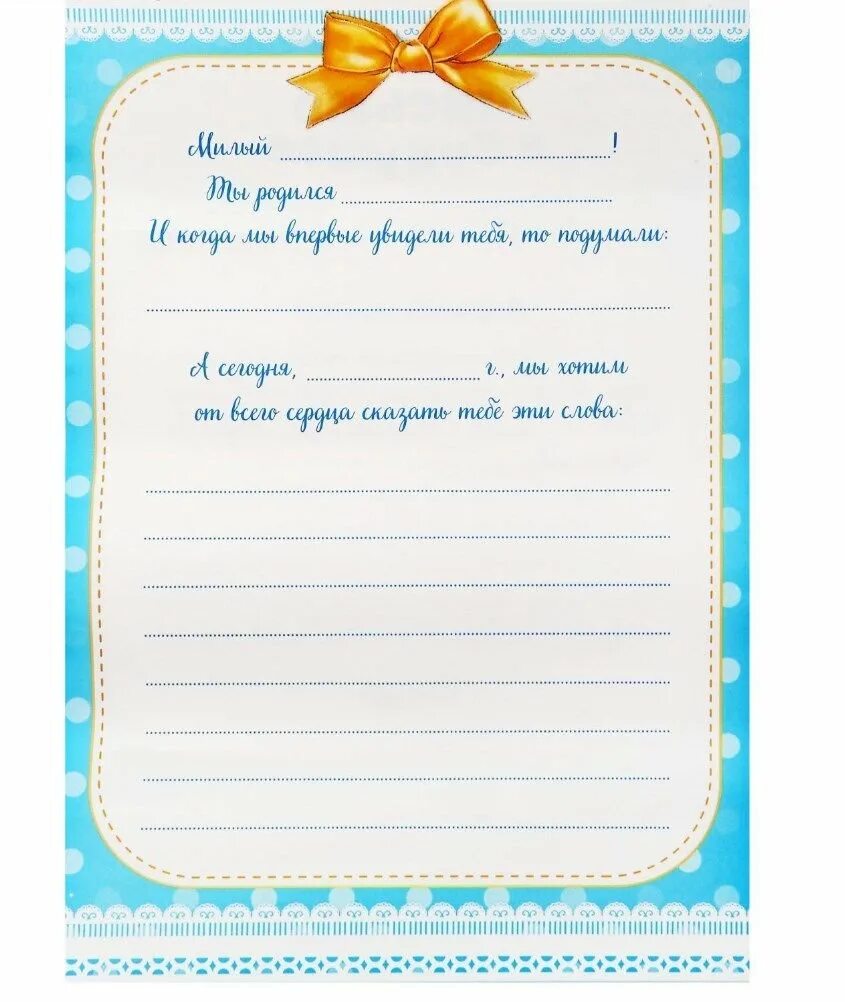 Милый !
Ты родился
И когда мы впервые увидели тебя, то подумали:
А сегодня, г., мы хотим
от всего сердца сказать тебе эти слова: